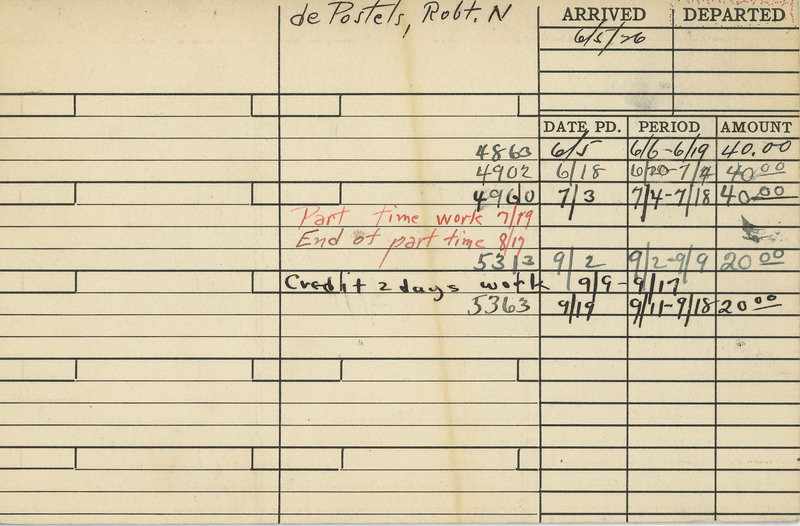 de Postels, Robt. N
ARRIVED DEPARTED
6/5/26
DATE PD. PERIOD AMOUNT
4863 6/5 6/6-6/19 40.00
4902 6/18 6/20-7/4 40.00
4960 7/3 7/4-7/18 40.00
Part time work 7/19
End of part time 8/17
5313 9/2 9/2-9/9 20.00
Credit 2 days work 9/9-9/17
5363 9/19 9/11-9/18 20.00